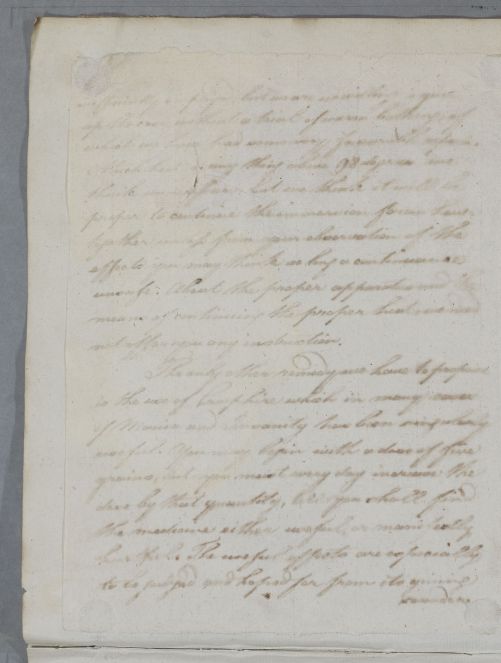 up the case without a trial of warm bathing, of
which we have had some very favourable
think any thing above 98 degrees we
think but we think it will be
proper to continue the immersion for an hour
together unless from your observation of the
effects you may think so long a continuance
unsafe. About the proper apparatus and the
means of continuing the proper heat we need
not offer you any instruction.
The only other remedy we have to propose
is the use of Camphire which in many cases
of Mania and Insanity has been singularly
useful. You may begin with a dose of five
grains, but you must every day increase the
dose by that quantity, till you shall find
the medicine either useful, or manifestly
hurtfull. The useful effects are especially
to be judged and hoped for from its giving